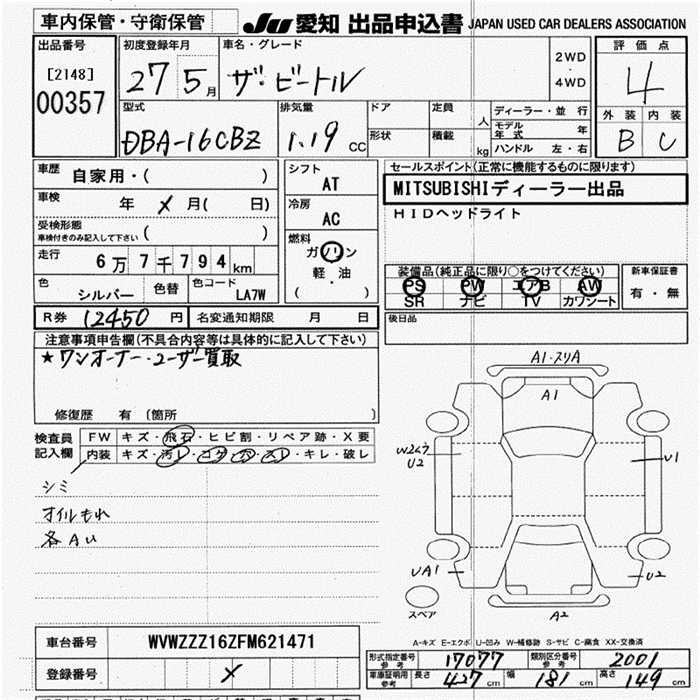 車内保管・守衛保管
JU 愛知 出品申込書 JAPAN USED CAR DEALERS ASSOCIATION
出品番号
[2148]
00357
初度登録年月
27 5月
車名・グレード
ザ・ビートル
2WD
・
4WD
評価点
4
外装 内装
B C
型式
DBA-16CBZ
排気量
1.19 CC
ドア
形状
定員 人
積載 kg
ディーラー・並行
モデル年式 年
ハンドル 左・右
車歴 自家用・( )
車検 年 メ 月( 日)
受検形態
車検付きのみ記入して下さい ( )
走行 6万7千794km
色 シルバー 色替 色コード LA7W
シフト
AT
冷房
AC
燃料
ガソリン
軽・油
( )
セールスポイント(正常に機能するものに限ります)
MITSUBISHIディーラー出品
HIDヘッドライト
装備品(純正品に限り○をつけてください)
PS PW エアB AW
SR ナビ TV カワシート
新車保証書
有・無
R券 12450円 名変通知期限 月 日
後日品
注意事項申告欄(不具合内容等は具体的に記入して下さい)
★ワンオーナー・ユーザー買取
修復歴 有 (箇所 )
検査員記入欄
FW キズ・飛石・ヒビ割・リペア跡・X要
内装 キズ・汚レ・コゲ・穴・スレ・キレ・破レ
シミ
オイルもれ
各AU
A1・スリA
A1
U2
U1
UA1
U2
スペア
A2
A-キズ E-エクボ U-凹み W-補修跡 S-サビ C-腐食 XX-交換済
車台番号 WVWZZZ16ZFM621471
登録番号 メ
形式指定番号 参考 17077 類別区分番号 参考 2001
車庫証明用 参考 長さ 427cm 幅 181cm 高さ 149cm